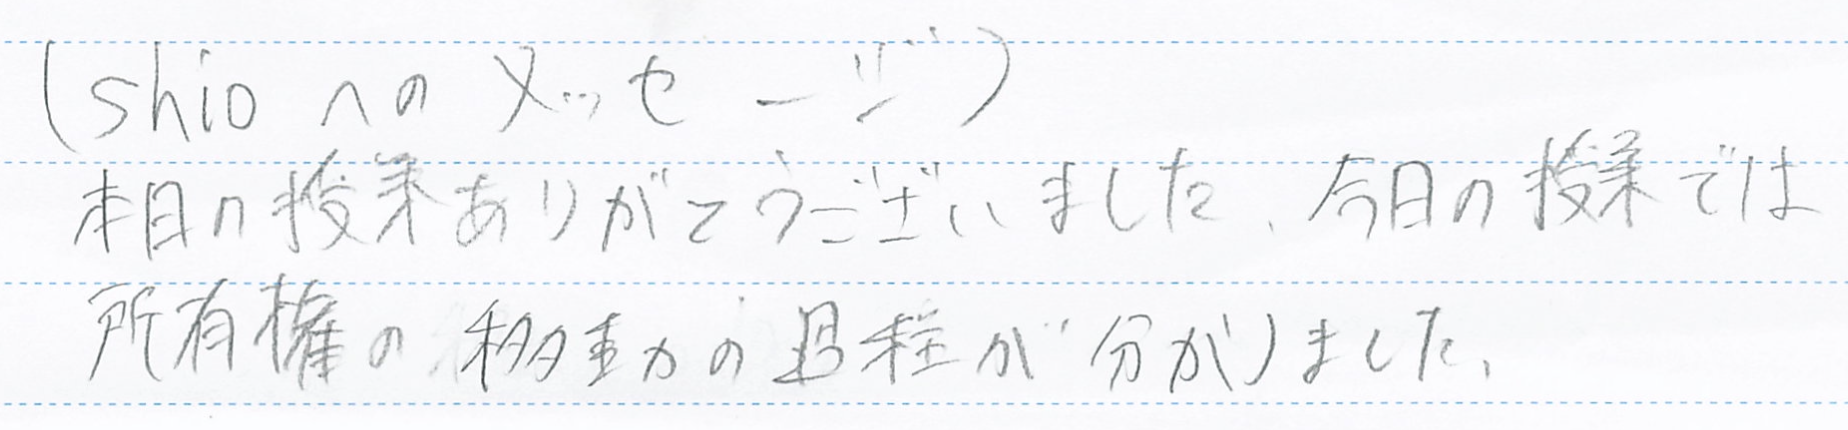 (shioへのメッセージ)
本日の授業ありがとうございました、今日の授業では
所有権の移動の過程が分かりました、